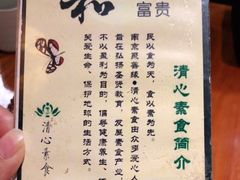 和
富贵
清心素食简介
民以食为天,食以素为先。
南京慈善缘·清心素食由众多爱心人
旨在弘扬圣贤教育,发展素食产业,
不以盈利为目的,倡导健康养生,
关爱生命、保护地球的生活方式。
清心素食